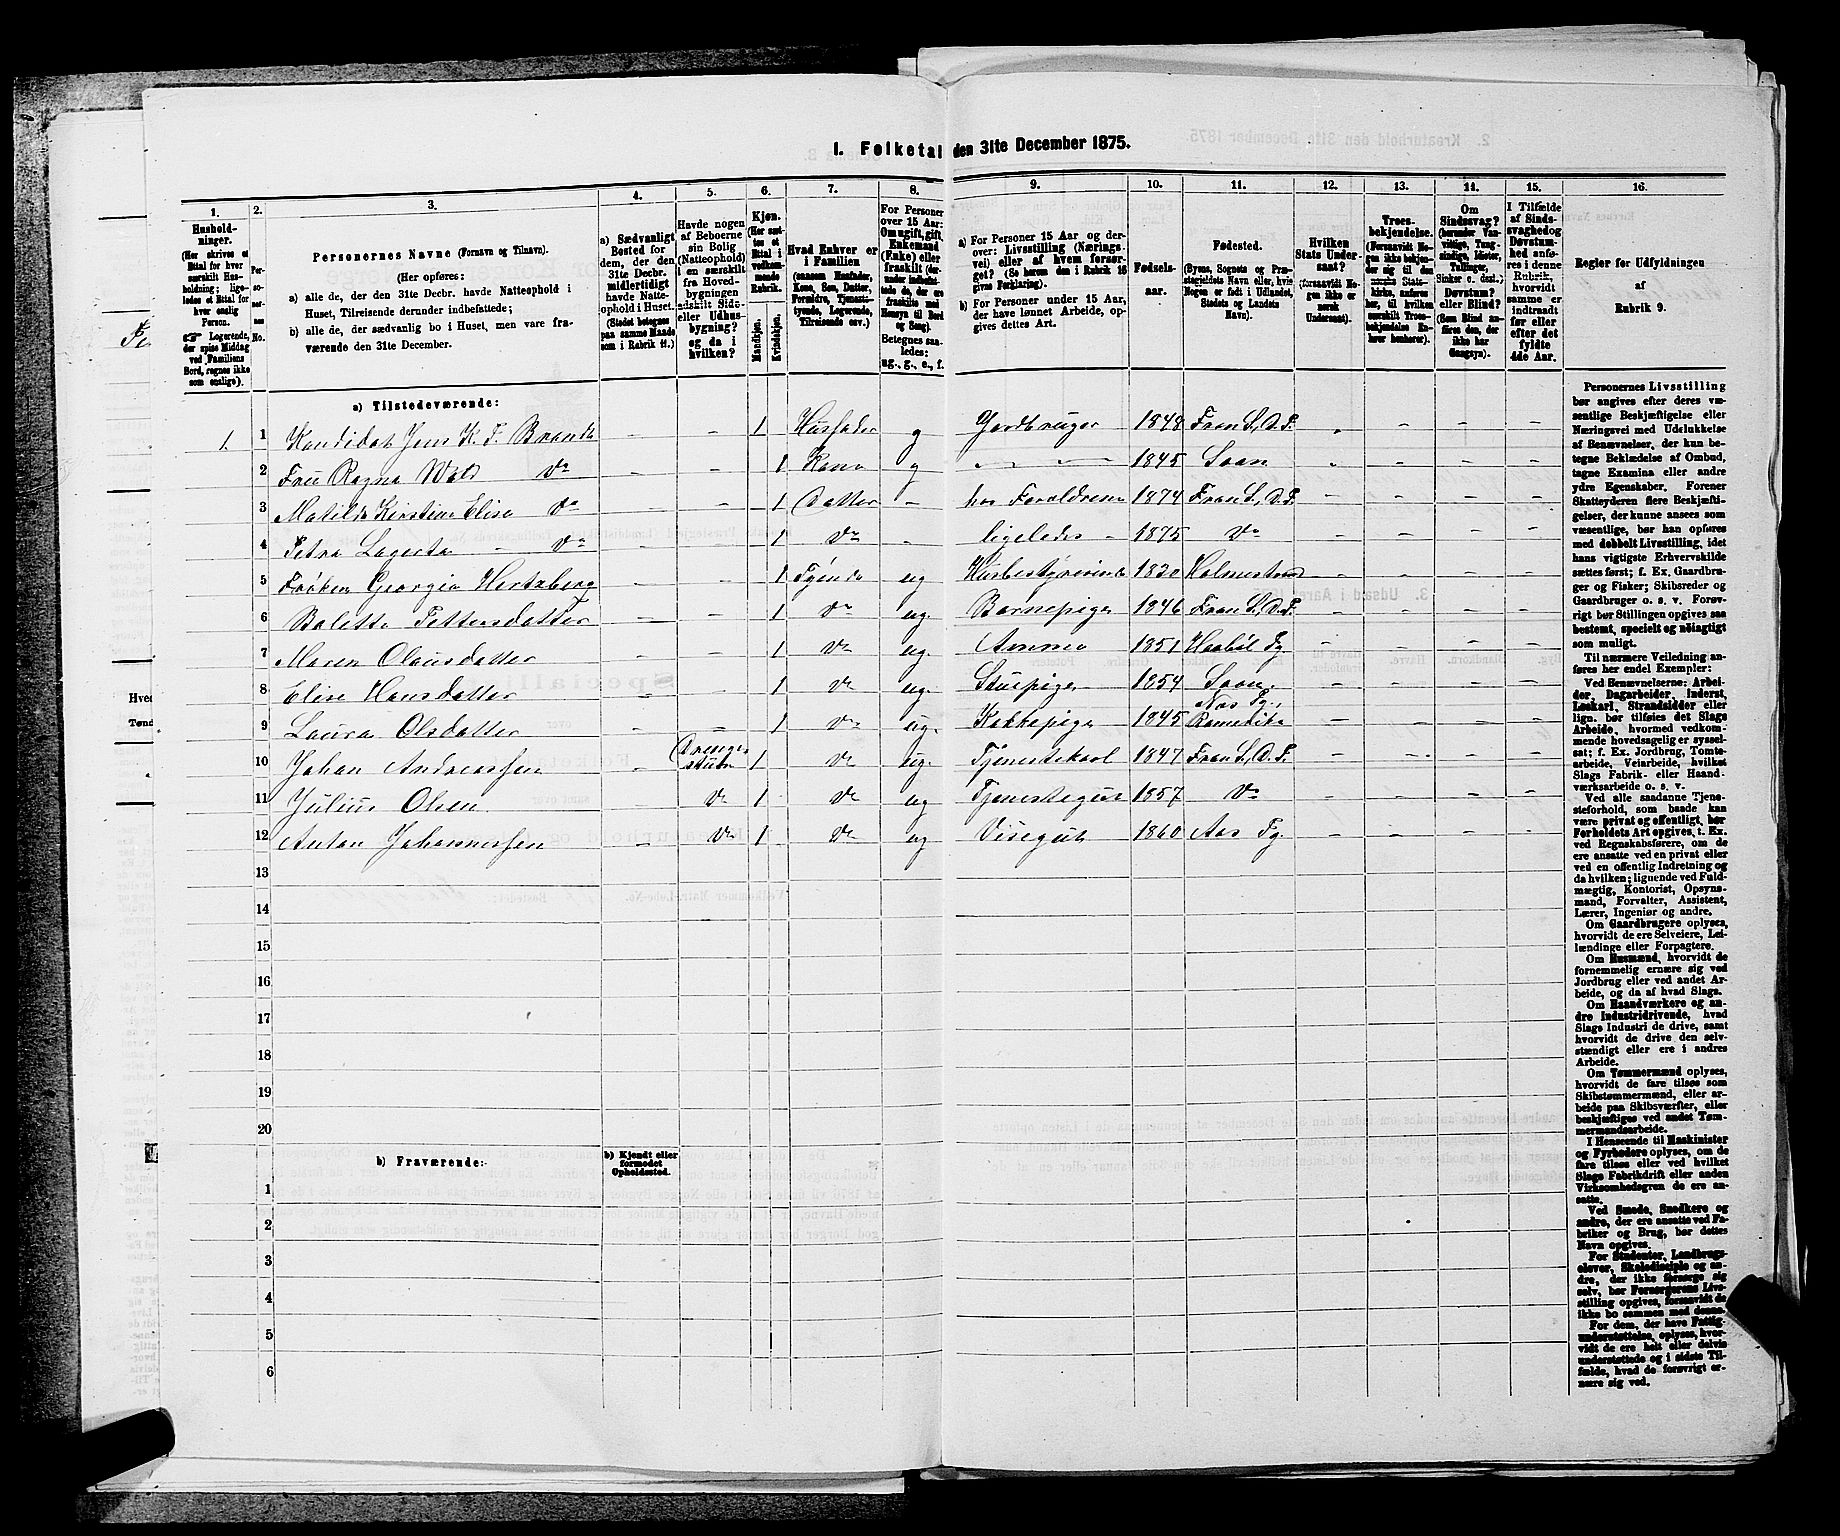 I. Folketal den 31te December 1875.
1.
2.
3.
4.
5.
6.
7.
8.
9.
10.
11.
12.
13.
14.
15.
16.
Hushold-
ninger.
(Her skrives et
Ettal for hver
særskilt Hus-
holdning; lige-
ledes et Ettal for
hver enslig
Person.
Logerende,
der spise Middag
ved Familiens
Bord, regnes ikke
som enslige).
Personernes Navne (Fornavn og Tilnavn).
(Her opføres:
a) alle de, der den 31te Decbr. havde Natteophold i
Huset, Tilreisende derunder indbefattede;
b) alle de, der sædvanlig bo i Huset, men vare fra-
værende den 31te December.
a) Sædvanligt
Bosted for
dem, der den
31te Decbr.
midlertidigt
havde Natte-
ophold i Huset.
(Stedet betegnes
paa samme Maade
som i Rubrik 11.)
Havde nogen
af Beboerne
sin Bolig
(Natteophold)
i en særskilt
fra Hoved-
bygningen
adskilt Side-
eller Udhus-
bygning?
og da i
hvilken?
Kjøn.
(Her sæt-
tes et
Ettal i
vedkom-
mende
Rubrik.
Mandkjøn.
Kvindekjøn.
Hvad Enhver er
i Familien
(saasom Husfader,
Kone, Søn, Datter,
Forældre, Tjenests-
tyende, Logerende,
Tilreisende osv.)
For Personer
over 15 Aar:
Om ugift, gift,
Enkemand
(Enke) eller
fraskilt
Betegnes saa-
ledes:
ug., g., e., f.
a) For Personer 15 Aar og der-
over: Livsstilling (Nærings-
vei) eller af hvem forsør-
get? (Se herom den i Rubrik 16
givne Forklaring).
b) For Personer under 15 Aar,
der have lønnet Arbeide, op-
gives dettes Art.
Fødsels-
aar.
Fødested.
(Byens, Sognets og Præ-
stegjeldets Navn eller, hvis
Nogen er født i Udlandet,
Stedets og Landets
Navn).
Hvilken
Stats Under-
saat?
(forsaavidt No-
gen ikke er
norsk
Undersaat).
Troes-
bekjendelse.
Om
Sindssvag?
Døvstum?
eller Blind?
I Tilfælde
af Sinds-
svaghed og
Døvstum-
hed anfø-
res i denne
Rubrik,
hvorvidt
samme er
indtraadt
før eller
efter det
fyldte
4de Aar.
Regler for Udfyldningen
af
Rubrik 9.
a) Tilstedeværende:
1. 1 Kandidat Jens K. F. Brandt — — 1 Husfader g Gardbruger 1848 Fron S., D. F.
2 Fru Ragna Wold Do — — 1 Kone g — — 1845 Soon
3 Matilde Kirstine Elise Do — — 1 Datter — hos Foreldrene 1874 Fron S., D. F.
4 Petra Lagerta — Do — — 1 Do — ligeledes 1875 Do
5 Frøken Georgia Hertzberg — — 1 Tjende ug Husbestyrerinde 1830 Holmestrand
6 Bolette Pettersdatter — — 1 Do ug. Barnepige 1846 Fron S., D. F.
7 Maren Olausdatter — — 1 Do ug. Amme 1851 Haabøl Pg
8 Elise Hansdatter — — 1 Do ug. Stuepige 1854 Soon
9 Laura Olsdatter — — 1 Do ug. Kokkepige 1845 Nes Pg., Romerike
10 Johan Andreassen — Drenge stuen 1 Do ug. Tjenestekarl 1847 Fron S., D. F.
11 Julius Olsen — Do 1 Do ug Tjenestegut 1857 Do
12 Anton Johannessen — Do 1 Do ug Visegut 1860 Aas Pg
13
14
15
16
17
18
19
20
b) Fraværende:
b) Kjendt eller
formodet
Opholdssted.
1
2
3
4
5
6
Personernes Livsstilling
bør angives efter deres væ-
sentlige Beskjæftigelse eller
Næringsvei med Udelukkelse
af Benævnelser, der kun be-
tegne Beklædelse af Ombud,
tagne Examina eller andre
ydre Egenskaber. Forener
Skatteyderen flere Beskjæfti-
gelser, der kunne ansees som
væsentlige, bør han opføres
med dobbelt Livsstilling, idet
hans vigtigste Erhvervskilde
sættes først; f. Ex. Gaardbru-
ger og Fisker; Skibsreder og
Gaardbruger o. s. v. Forøv-
rigt bør Stillingen opgives saa
bestemt, specielt og nøiagtigt
som muligt.
Til nærmere Veiledning an-
føres her endel Exempler:
Ved Benævnelserne: Arbei-
der, Dagarbeider, Inderst,
Løskarl, Strandsidder eller
lign. bør tilføies det Slags
Arbeide, hvormed vedkom-
mende hovedsagelig er syssel-
sat; f. Ex. Jordbrug, Tomte-
arbeide, Veiarbeide, hvilket
Slags Fabrik- eller Haand-
værksarbeide o. s. v.
Ved alle saadanne Tjene-
steforhold, som baade kan
være privat og offentligt, bør
Forholdets Art opgives, t. Ex.
ved Regnskabsførere, om de
ere ansatte ved en privat eller
ved en offentlig Indretning og
da hvilken; lignende ved Fuld-
mægtig, Kontorist, Opsyns-
mand, Forvalter, Assistent,
Lærer, Ingeniør og andre.
Om Gaardbrugere oplyses,
hvorvidt de ere Selveiere, Lei-
lændinge eller Forpagtere.
Om Husmænd, hvorvidt de
fornemmelig ernære sig ved
Jordbrug eller ved andet Ar-
beide, og da af hvad Slags.
Om Haandværkere og an-
dre Industridrivende, hvad
Slags Industri de drive, samt
hvorvidt de drive den selv-
stændigt eller ere i andres
Arbeide.
Om Tømmermænd oplyses,
hvorvidt de fare tilsøs som
Skibstømmermænd, eller ar-
beide paa Skibsværfter, eller
beskjæftiges ved andet Tøm-
mermandsarbeide.
I Henseende til Maskinister
og Fyrbødere oplyses, om de
fare tilsøs eller ved hvilket
Slags Fabrikdrift eller anden
Virksomhedsgren de ere an-
satte.
Ved Smede, Snedkere og
andre, der ere ansatte ved Fa-
briker og Brug, bør dettes
Navn opgives.
For Studenter, Landbrugs-
elever, Skoledisciple og an-
dre, der ikke forsørge sig
selv, bør Forsørgerens Liv-
stilling opgives, forsaavidt de
ikke bo sammen med denne.
For dem, der have Fattig-
understøttelse, oplyses, hvor-
vidt de ere helt eller delvis
understøttede og i sidste Til-
fælde, hvad de forøvrigt er-
nære sig ved.